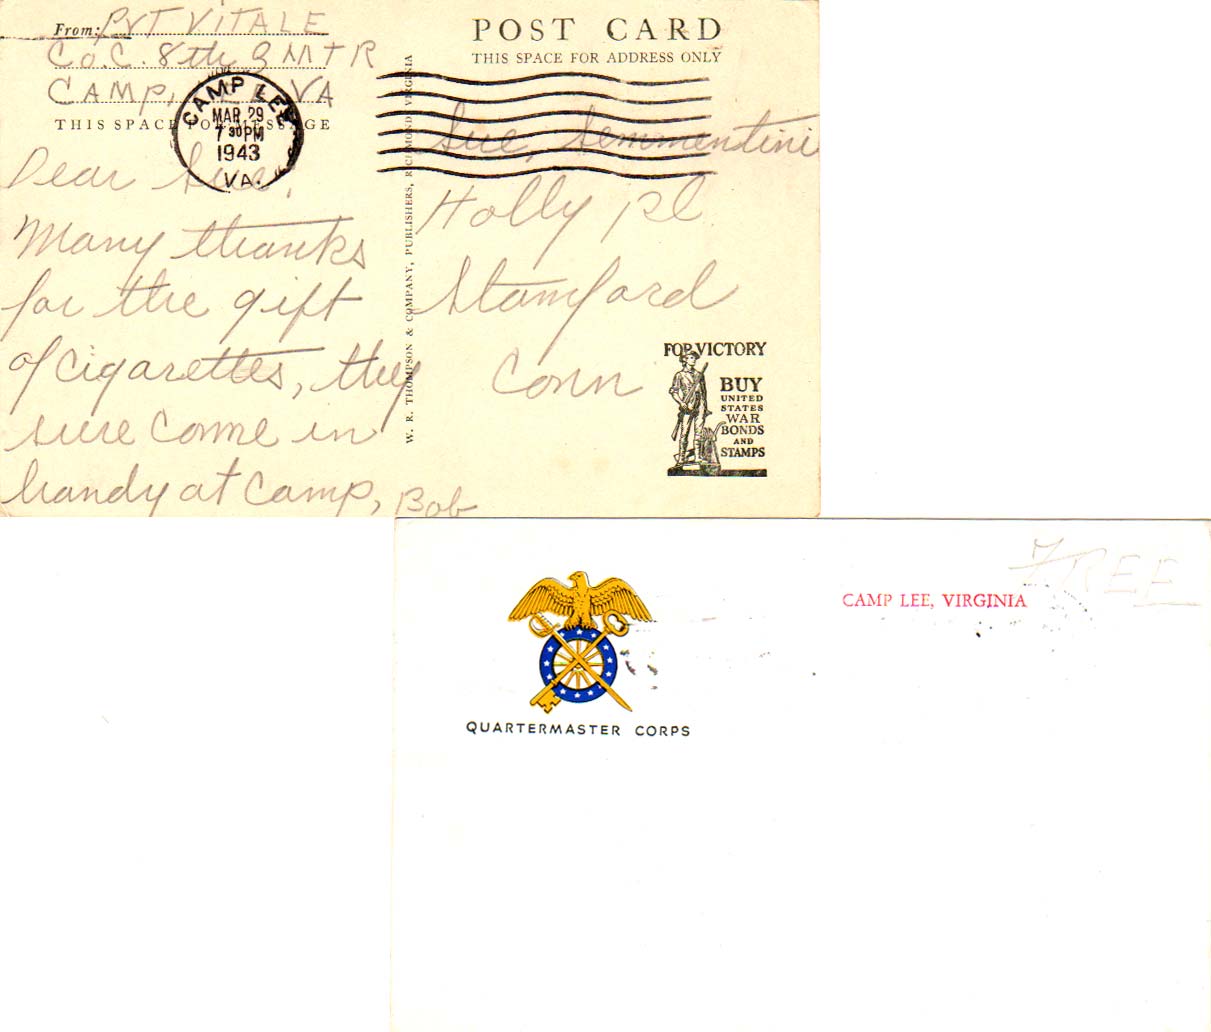 From: PVT VITALE
Co. C. 8th Q M T R
CAMP, LEE VA
THIS SPACE FOR MESSAGE
Dear Sue,
Many thanks
for the gift
of cigarettes, they
sure come in
handy at camp, Bob
CAMP LEE
MAR 29
7 30 PM
1943
VA.
W. R. THOMPSON & COMPANY, PUBLISHERS, RICHMOND, VIRGINIA
POST CARD
THIS SPACE FOR ADDRESS ONLY
Sue, Semmentini
Holly pl
Stamford
Conn
FOR VICTORY
BUY
UNITED
STATES
WAR
BONDS
AND
STAMPS
FREE
CAMP LEE, VIRGINIA
QUARTERMASTER CORPS